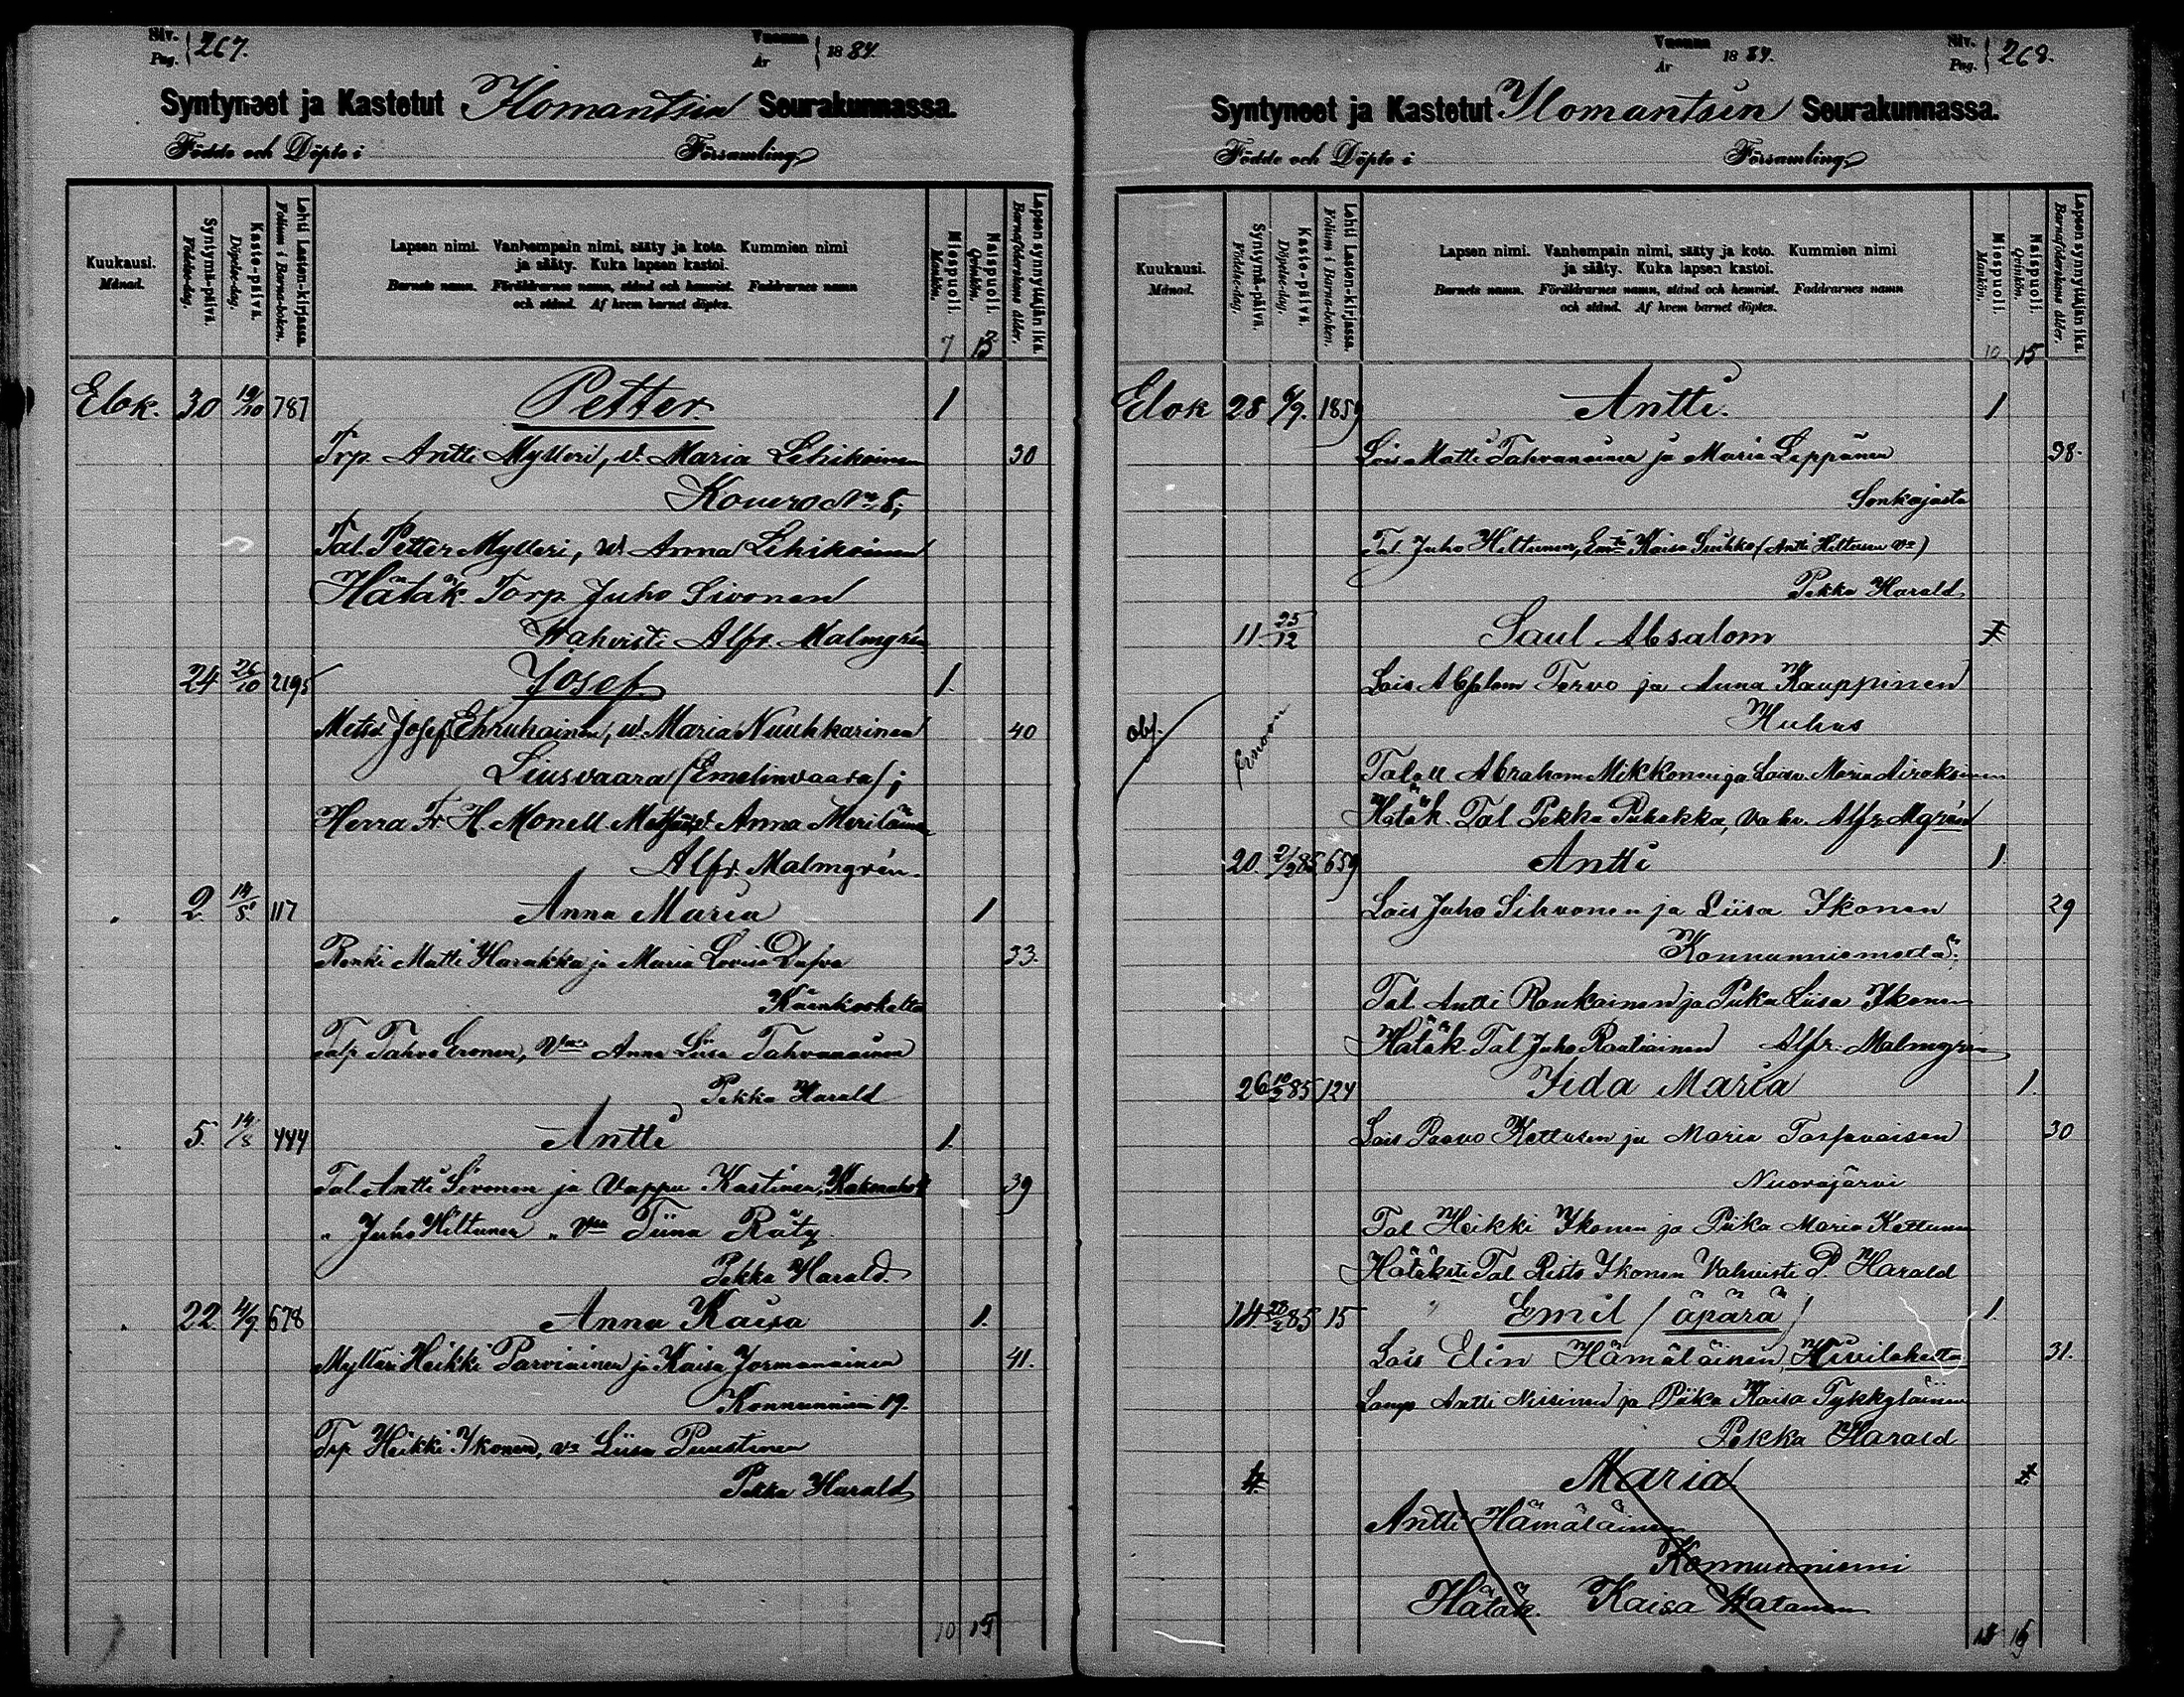 Siv. Pag. 267.
Vuonna År 1884.
Syntyneet ja Kastetut Ilomantsin Seurakunnassa.
Födde och Döpte i Församling
Kuukausi. Månad.
Syntymä-päivä. Födelse-dag.
Kaste-päivä. Döpelse-dag.
Lehti Lasten-kirjassa. Folium i Barna-boken.
Lapsen nimi. Vanhempain nimi, sääty ja koto. Kummien nimi
ja sääty. Kuka lapsen kastoi.
Barnets namn. Föräldrarnes namn, stånd och hemvist. Faddrarnes namn
och stånd. Af hvem barnet döptes.
Miespuoli. Mankön.
Naispuoli. Qvinkön.
Lapsen synnyttäjän ikä. Barnaföderskans ålder.
7 13
Elok. 30 19/10 787 Petter. 1
Trp. Antti Mylleri, v. Maria Lehikoinen 30
Kouero No 8;
Tal. Petter Mylleri, v. Anna Lehikoinen
Hätäk. Torp. Juho Sivonen
Wahvisti Alfr. Malmgrén
24 26/10 2195 Josef 1.
Metsä Josef Ehruhainen, v. Maria Nuuhkarinen 40
Liusvaara (Emelinvaara);
Herra Fr. H. Monell Anna Meriläinen
Alfr. Malmgrén.
2 14/8 117 Anna Maria 1
Renki Matti Harakka ja Maria Lovisa 33.
Käenkoskelta
Talp Tahvo Eronen, Vmo Anna Liisa Tahvanainen
Pekka Harald
5. 14/8 444 Antti 1.
Tal. Antti Sivonen ja Vappu Kastinen, 39
" Juho Hiltunen " Vm Tiina Räty
Pekka Harald.
22. 4/9 678 Anna Kaisa 1.
Mylläri Heikki Parviainen ja Kaisa Jormanainen 41.
Konnunniemi 19.
Trp Heikki Ikonen, va Liisa Puustinen
Pekka Harald
10 15
Vuonna År 1884.
Siv. Pag. 268.
Syntyneet ja Kastetut Ilomantsin Seurakunnassa.
Födde och Döpte i Församling
Kuukausi. Månad.
Syntymä-päivä. Födelse-dag.
Kaste-päivä. Döpelse-dag.
Lehti Lasten-kirjassa. Folium i Barna-boken.
Lapsen nimi. Vanhempain nimi, sääty ja koto. Kummien nimi
ja sääty. Kuka lapsen kastoi.
Barnets namn. Föräldrarnes namn, stånd och hemvist. Faddrarnes namn
och stånd. Af hvem barnet döptes.
Miespuoli. Mankön.
Naispuoli. Qvinkön.
Lapsen synnyttäjän ikä. Barnaföderskans ålder.
10 15
Elok 28 6/9. 1859 Antti. 1
Lois Matti Tahvanainen ja Maria Leppänen 38.
Sonkajasta
Tal Juho Hiltunen, Emtä Kaisa Suihko (Antti Hiltusen va)
Pekka Harald
11. 25/12 Saul Absalom 1
Lois Absalom Tervo ja Anna Kauppinen
Obs. Enoon Huhus
Talall Abraham Mikkonen ja Loisv. Maria Airaksinen
Hätäk. Tal. Pekka Puhakka, Vahv. Alfr. Mgrén
20. 2/2 85 659 Antti 1.
Lois Juho Sihvonen ja Liisa Ikonen 29
Konnunniemeltä.
Tal. Antti Raukainen ja Piika Liisa Ikonen
Hätäk. Tal Juho Rautiainen Alfr. Malmgrén
26 10/2 85 124 Iida Maria 1.
Lois Paavo Kettusen ja Maria Tarfvaisen 30
Nuorajärvi
Tal Heikki Ikonen ja Piika Maria Kettunen
Hätäksti Tal Risto Ikonen Vahvisti P. Harald
14 28/2 85 15 " Emil (äpärä) 1.
Lois Elin Hämäläinen, Hiivilehetta 31.
Lamp Antti Nissinen ja Piika Kaisa Tykkyläinen
Pekka Harald
4. Maria 1
Antti Hämäläinen
Konnunniemi
Hätäk. Kaisa Hatanen